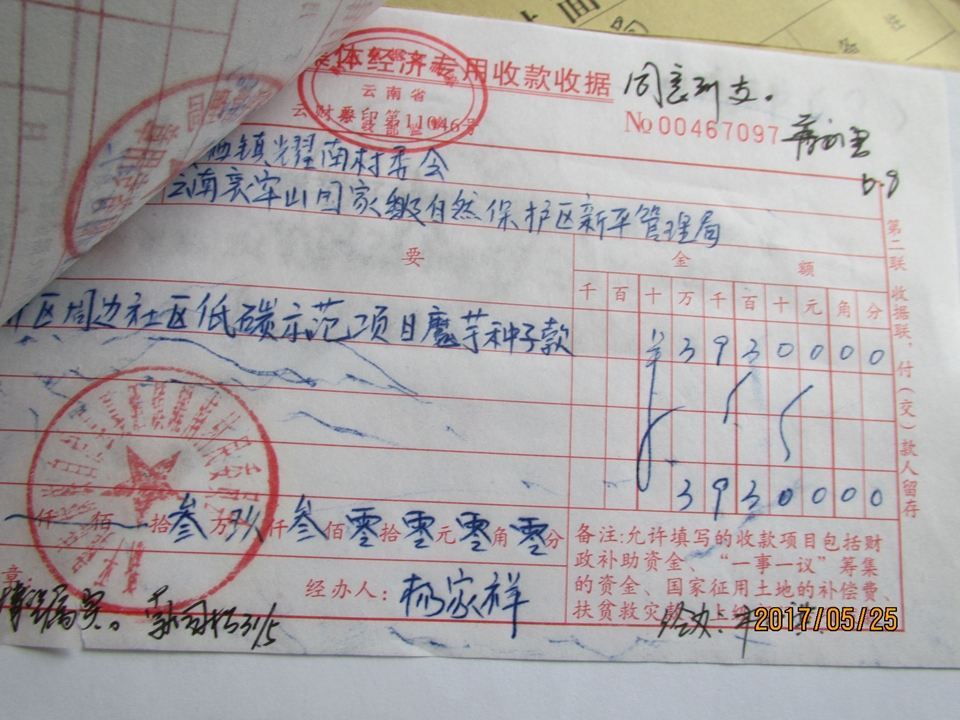 体经济专用收款收据
同意列支。
云南省
云财票印第11046号
No 00467097
6.8
西镇耀南村委会
云南哀牢山国家级自然保护区新平管理局
要
金额
千百十万千百十元角分
区周边社区低碳示范项目魔芋种子款
¥39300000
39300000
仟佰拾叁万玖仟叁佰零拾零元零角零分
第二联 收据联,付(交)款人留存
备注:允许填写的收款项目包括财
政补助资金、“一事一议”筹集
的资金、国家征用土地的补偿费、
扶贫救灾款
章:
经办人:杨家祥
属实。
31/5
经办:
2017/05/25